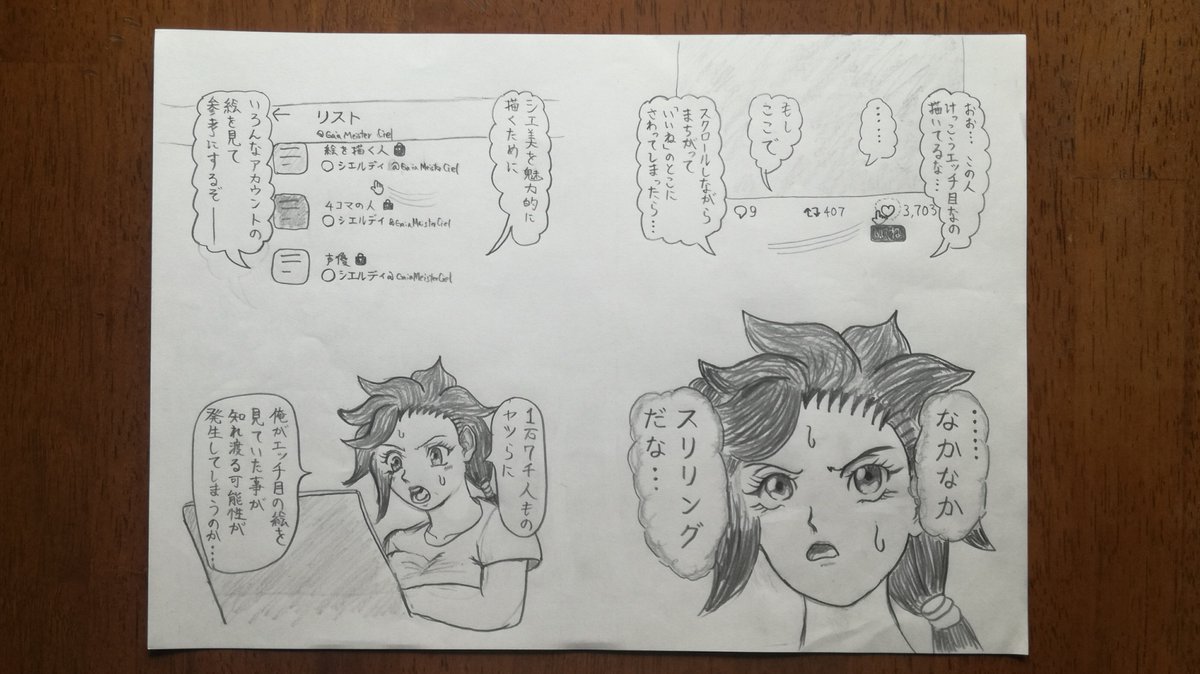 シエ美を魅力的に
描くために
リスト
@Gaia Meister Ciel
絵を描く人
シエルディ @Gaia MeisterCiel
4コマの人
シエルディ @GaiaMeisterCiel
声優
シエルディ @GaiaMeisterCiel
いろんなアカウントの
絵を見て
参考にするぞ——
おお…この人
けっこうエッチ目なの
描いてるな…
……
もし
ここで
スクロールしながら
まちがって
「いいね」のとこに
さわってしまったら…
9 407 3,703
いいね
1万7千人もの
ヤツらに
俺がエッチ目の絵を
見ていた事が
知れ渡る可能性が
発生してしまうのか…
……なかなか
スリリング
だな…